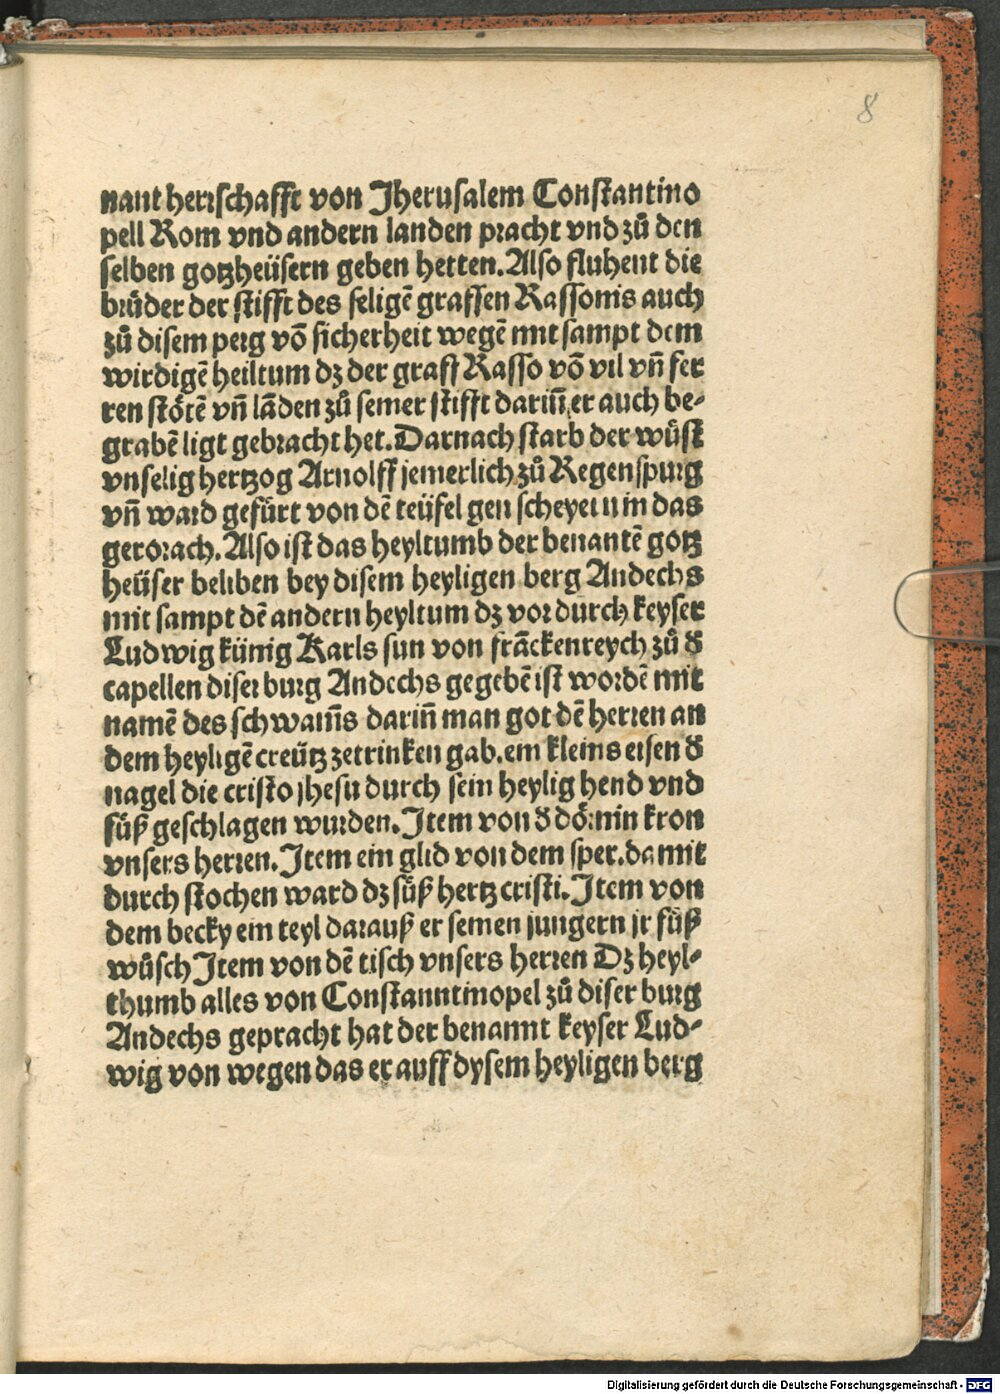 8
nant herrschafft von Jherusalem Constantino
pell Rom vnd andern landen pracht vnd zů den
selben gotzheüsern geben hetten. Also fluhent die
brůder der stifft des seligē graffen Rassonis auch
zů disem perg vō sicherheit wegē mit sampt dem
wirdigē heiltum dz der graff Rasso vō vil vñ fer
ren stötē vñ lāden zů seiner stifft dariñ er auch be-
grabē ligt gebracht het. Darnach starb der wůst
vnselig hertzog Arnolff jemerlich zů Regenspurg
vñ ward gefürt von dē teüfel gen scheyern in das
gerorach. Also ist das heyltumb der benantē gotz
heüser beliben bey disem heyligen berg Andechs
mit sampt dē andern heyltum dz vor durch keyser
Ludwig künig Karls sun von frāckenreych zů d̕
capellen diser burg Andechs gegebē ist wordē mit
namē des schwam̄s dariñ man got dē herren an
dem heyligē creütz zetrinken gab. ein kleins eisen d̕
nagel die cristo jhesu durch sein heylig hend vnd
füß geschlagen wurden. Item von d̕ dörnin kron
vnsers herren. Item ein glid von dem sper. da mit
durch stochen ward dz süß hertz cristi. Item von
dem becky ein teyl darauß er seinen jungern jr füß
wůsch Item von dē tisch vnsers herren Dz heyl-
thumb alles von Constanntinopel zů diser burg
Andechs gepracht hat der benannt keyser Lud-
wig von wegen das er auff dysem heyligen berg
Digitalisierung gefördert durch die Deutsche Forschungsgemeinschaft - DFG